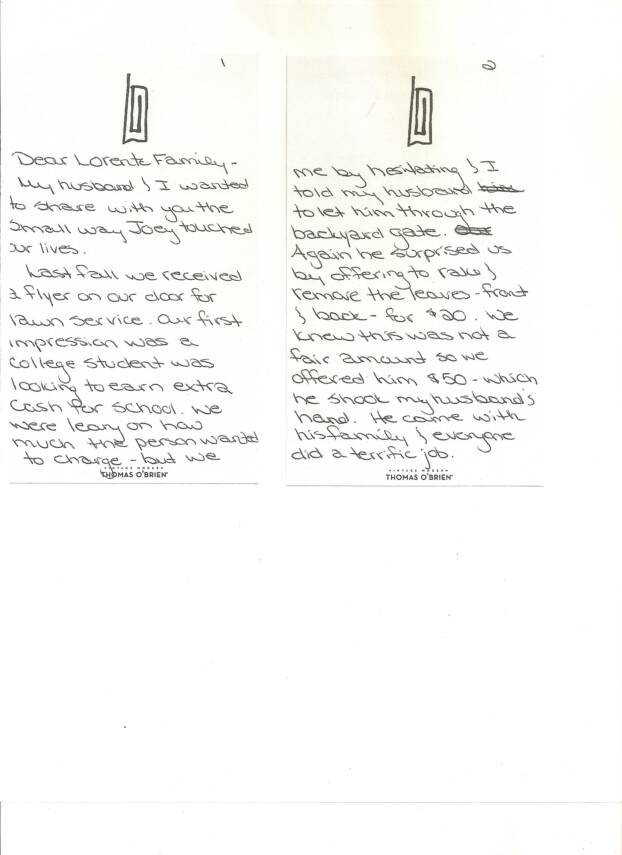 1
Dear Lorente Family -
My husband & I wanted
to share with you the
small way Joey touched
our lives.
Last fall we received
a flyer on our door for
lawn service. Our first
impression was a
college student was
looking to earn extra
cash for school. We
were leary on how
much the person wanted
to charge - but we
VINTAGE MODERN
THOMAS O'BRIEN
2
me by hesitating & I
told my husband
to let him through the
backyard gate.
Again he surprised us
by offering to rake &
remove the leaves - front
& back - for $20. We
knew this was not a
fair amount so we
offered him $50 - which
he shook my husband's
hand. He came with
his family & everyone
did a terrific job.
VINTAGE MODERN
THOMAS O'BRIEN